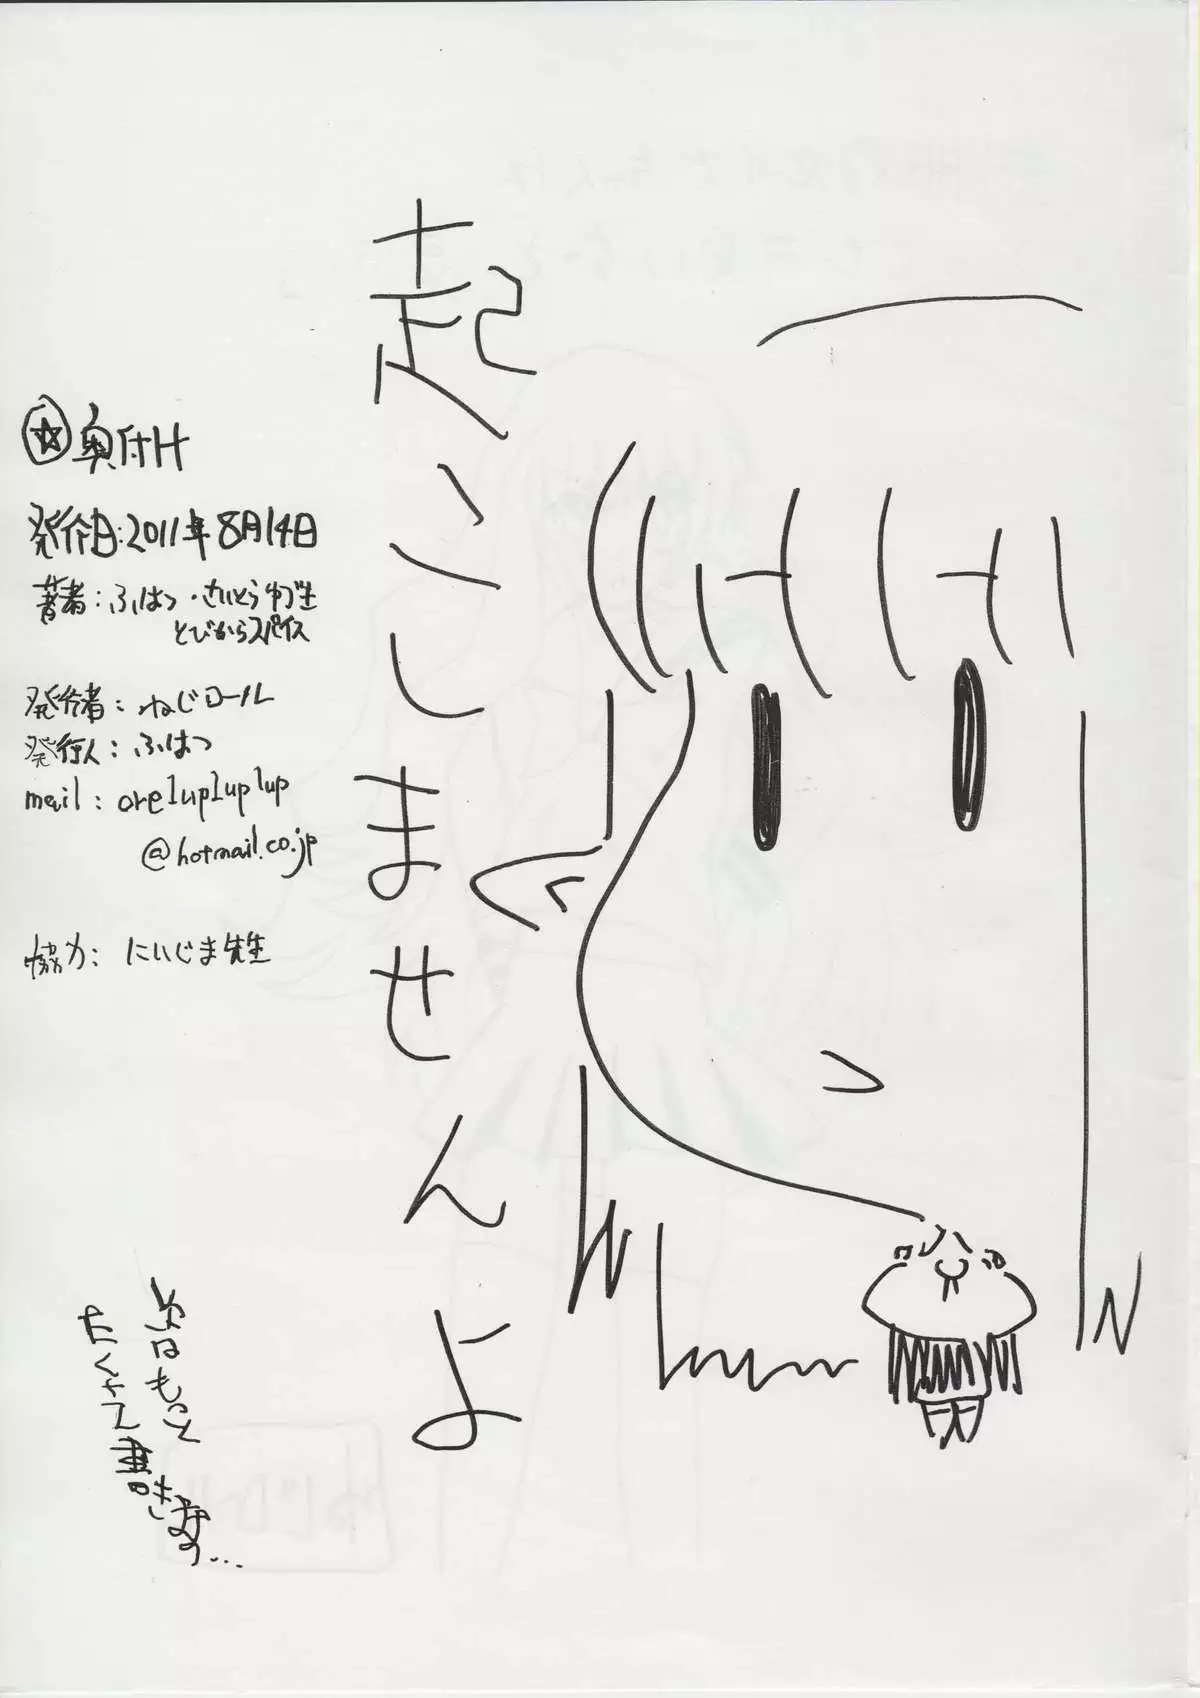 起こしませんよ
☆奥付け
発行日:2011年8月14日
著者:ふはつ・さいとう中生
とびからスパイス
発行者:ねじロール
発行人:ふはつ
mail:ore1up1up1up
@hotmail.co.jp
協力:にいじま先生
次はもっと
たくさん書きます…